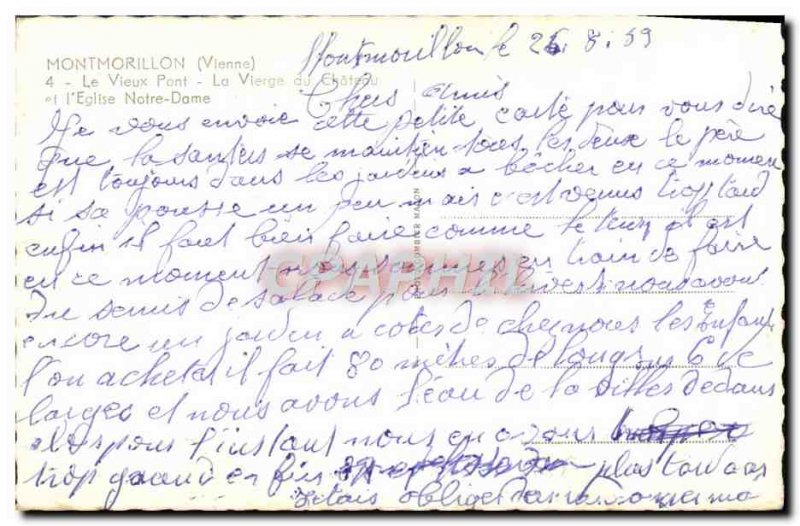 MONTMORILLON (Vienne)
4 - Le Vieux Pont - La Vierge du Château
et l'Eglise Notre-Dame
Montmorillon le 26.8.59
Chers Amis
Je vous envoie cette petite carte pour vous dire
que la santés se maintien tous les deux le père
est toujours dans les jardins a bêcher en ce momen
si sa pousse un peu mais c'est venus trop tard
enfin il faut bien faire comme le tem il est
en ce moment nous sommes en train de faire
du semis de salade pour nous avon
encore un jarden a cotes de chez nous les Enfan
l'on acheter il fait 80 mètres de long sus 6 de
larges et nous avons l'eau de la villes dedans
alors pour l'instant nous en avons
trop grand enfin plus tard
obliger
CPARHIL
COMBIER MACON